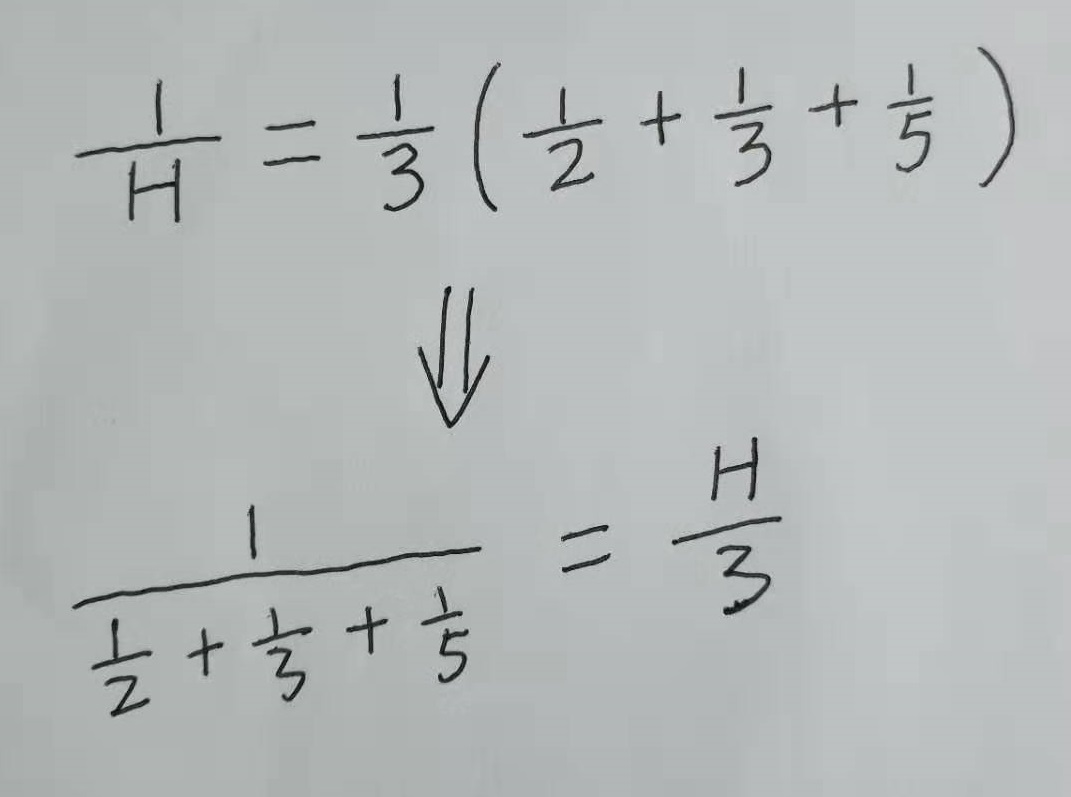 1/H = 1/3 ( 1/2 + 1/3 + 1/5 )
⇓
1/(1/2 + 1/3 + 1/5) = H/3